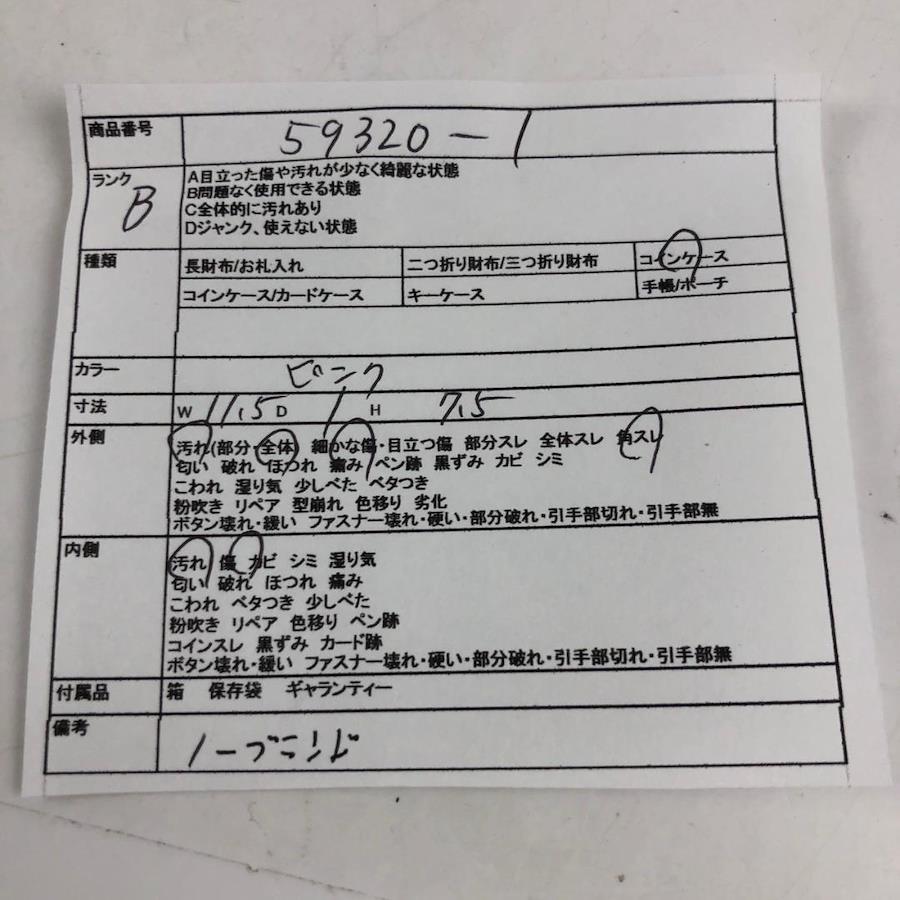 商品番号 59320-1
ランク B
A目立った傷や汚れが少なく綺麗な状態
B問題なく使用できる状態
C全体的に汚れあり
Dジャンク、使えない状態
種類 長財布/お札入れ 二つ折り財布/三つ折り財布 コインケース
コインケース/カードケース キーケース 手帳/ポーチ
カラー ピンク
寸法 W 11.5 D 1 H 7.5
外側 汚れ(部分・全体) 細かな傷・目立つ傷 部分スレ 全体スレ 角スレ
匂い 破れ ほつれ 痛み ペン跡 黒ずみ カビ シミ
こわれ 湿り気 少しべた ベタつき
粉吹き リペア 型崩れ 色移り 劣化
ボタン壊れ・緩い ファスナー壊れ・硬い・部分破れ・引手部切れ・引手部無
内側 汚れ 傷 カビ シミ 湿り気
匂い 破れ ほつれ 痛み
こわれ ベタつき 少しべた
粉吹き リペア 色移り ペン跡
コインスレ 黒ずみ カード跡
ボタン壊れ・緩い ファスナー壊れ・硬い・部分破れ・引手部切れ・引手部無
付属品 箱 保存袋 ギャランティー
備考 ノーブランド